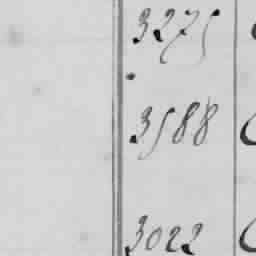 3275
3588
3022